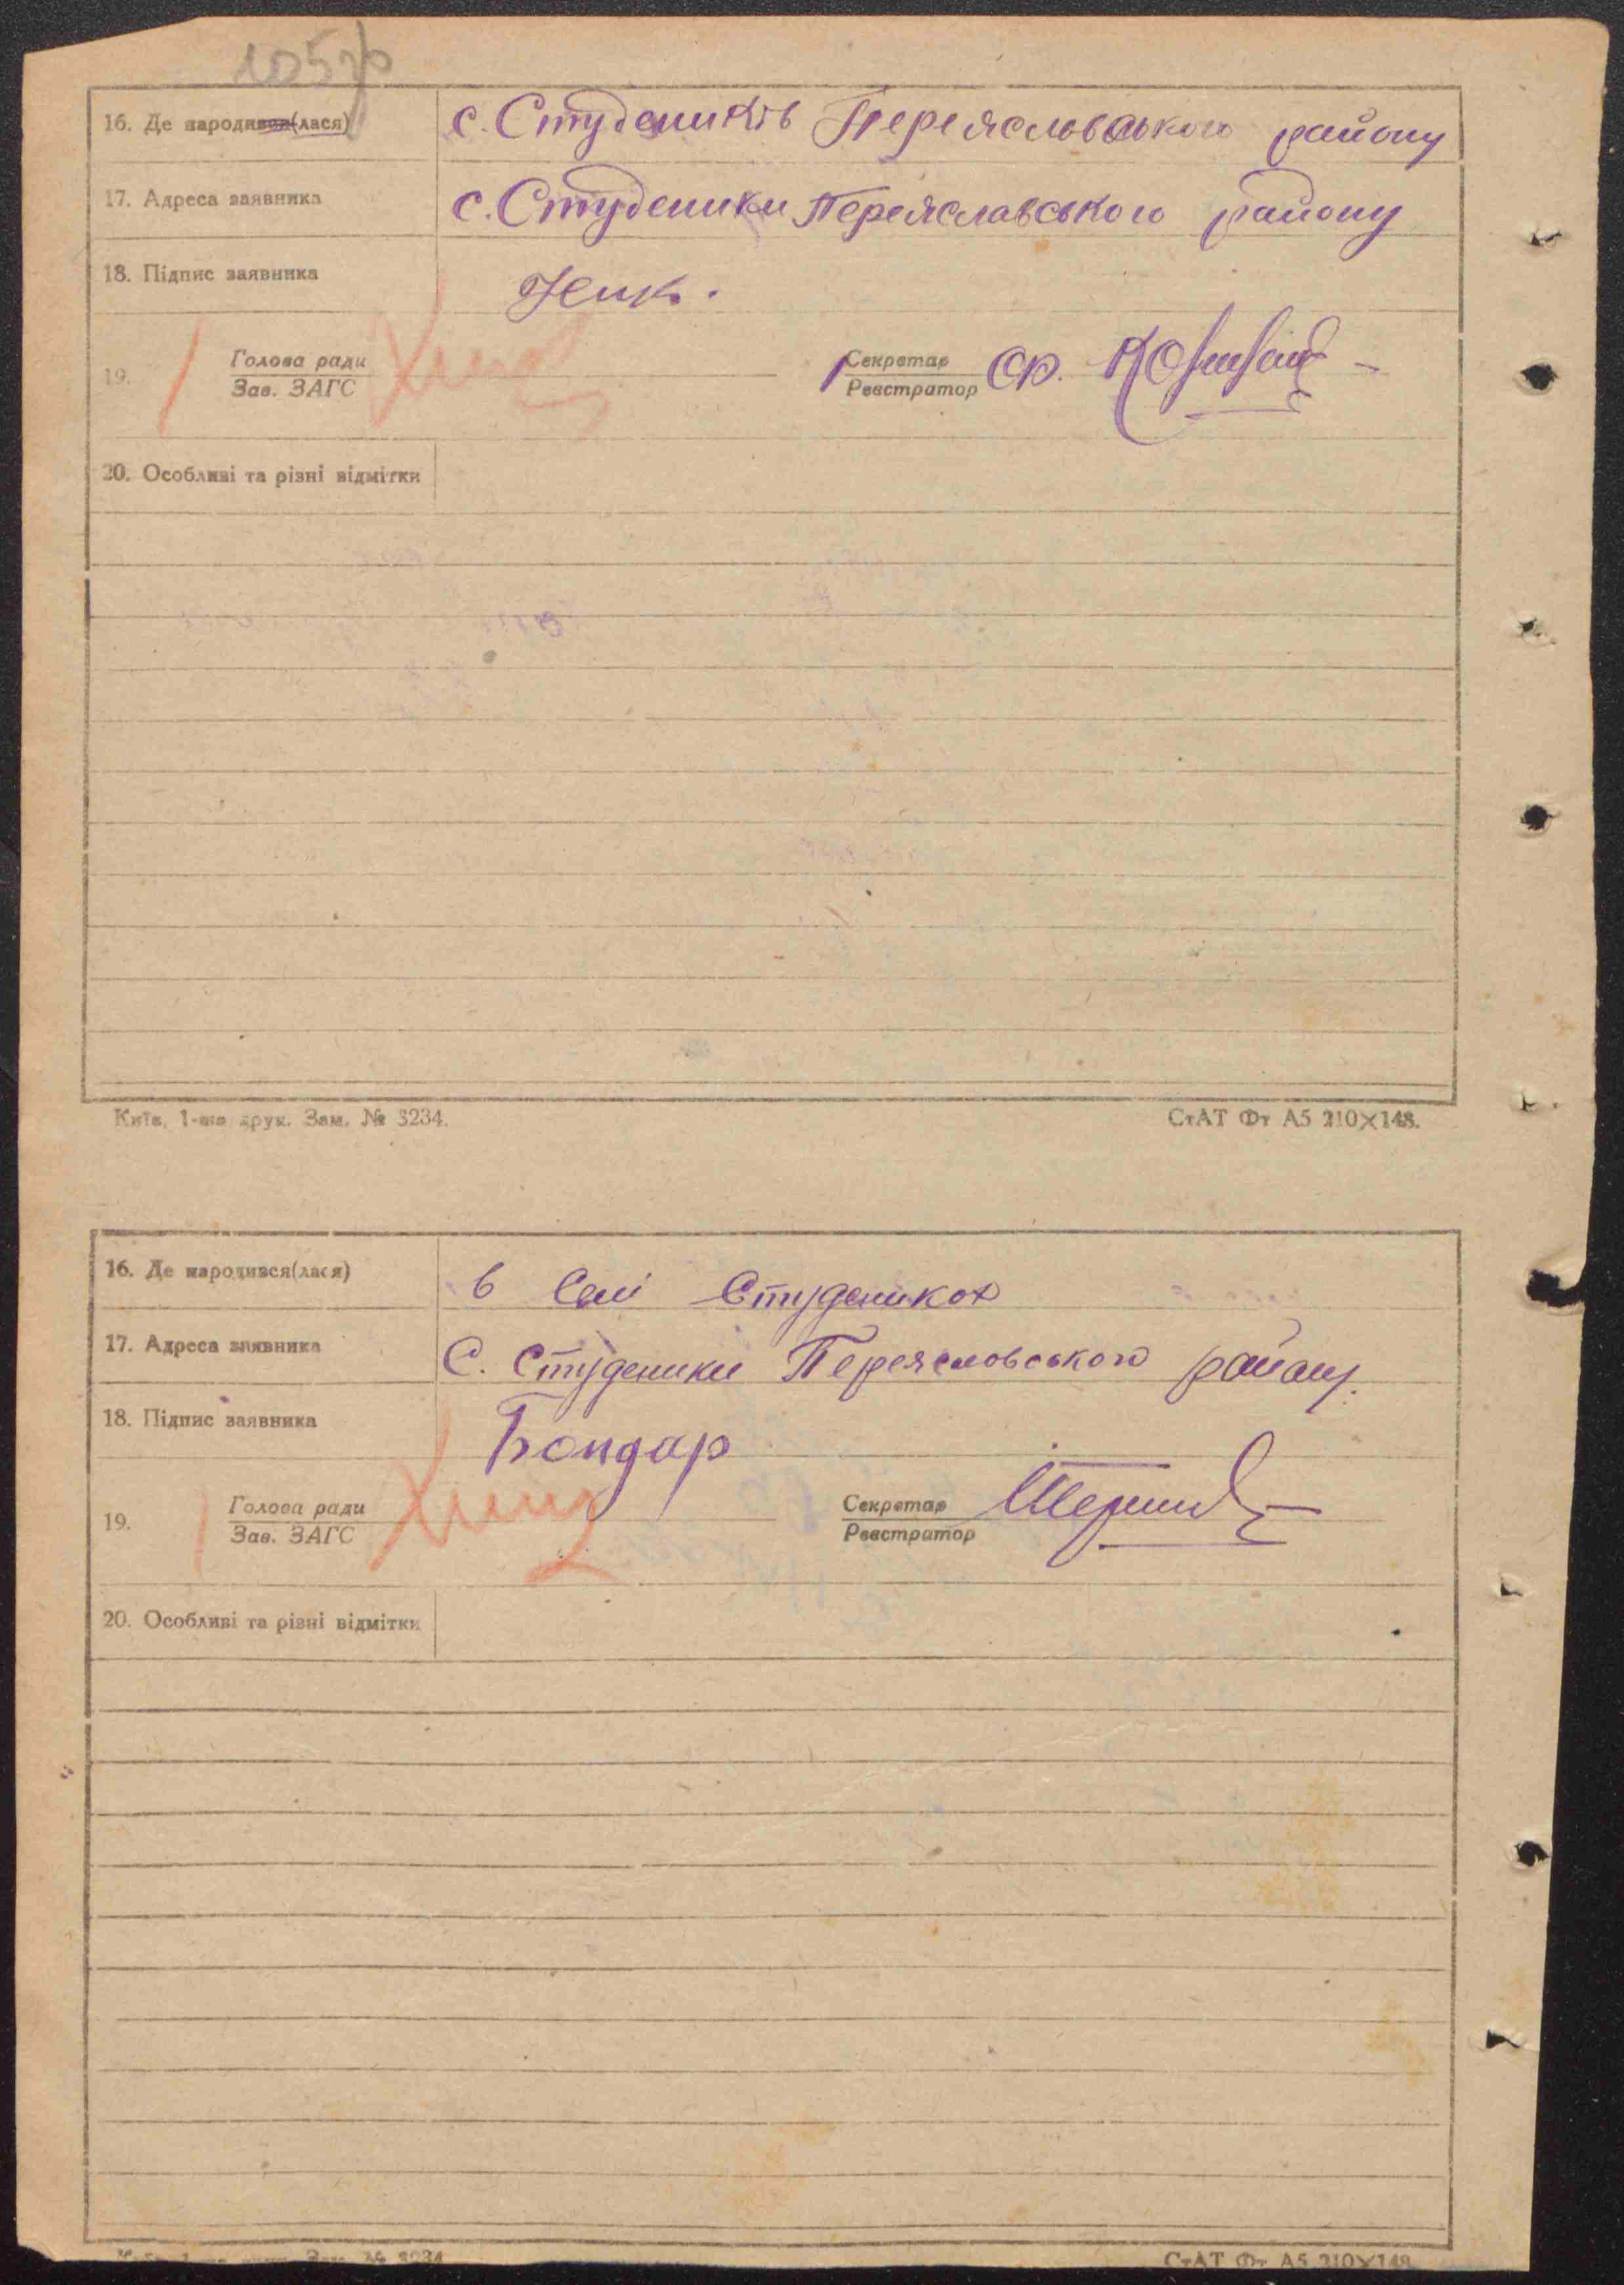 16. Де народився(лася) с. Студеників Переяславського району
17. Адреса заявника с. Студеники Переяславського району
18. Підпис заявника
19. Голова ради Секретар
Зав. ЗАГС Реєстратор
20. Особливі та різні відмітки
Київ, 1-ша друк. Зам. № 3234. СтАТ Фт А5 210×148.
16. Де народився(лася) в селі Студениках
17. Адреса заявника С. Студеники Переясловського району.
18. Підпис заявника Бондар
19. Голова ради Секретар
Зав. ЗАГС Реєстратор
20. Особливі та різні відмітки
Зам. № 3234 СтАТ Фт А5 210×148